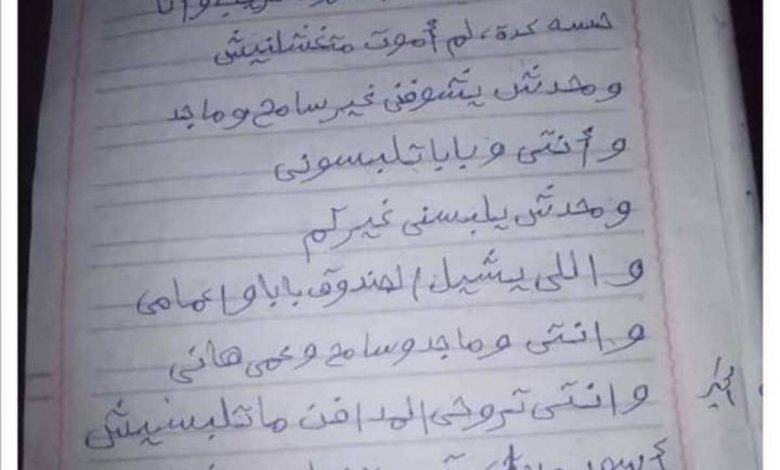 حسه كدة، لم أموت متغسلنيش
ومحدش يشوفنى غير سامح وماجد
وأنتى وبابا تلبسونى
ومحدش يلبسنى غيركم
واللى يشيل الصندوق بابا واعمامى
وانتى وماجد وسامح وعمى هانى
وانتى تروحى المدافن ماتلبسيش